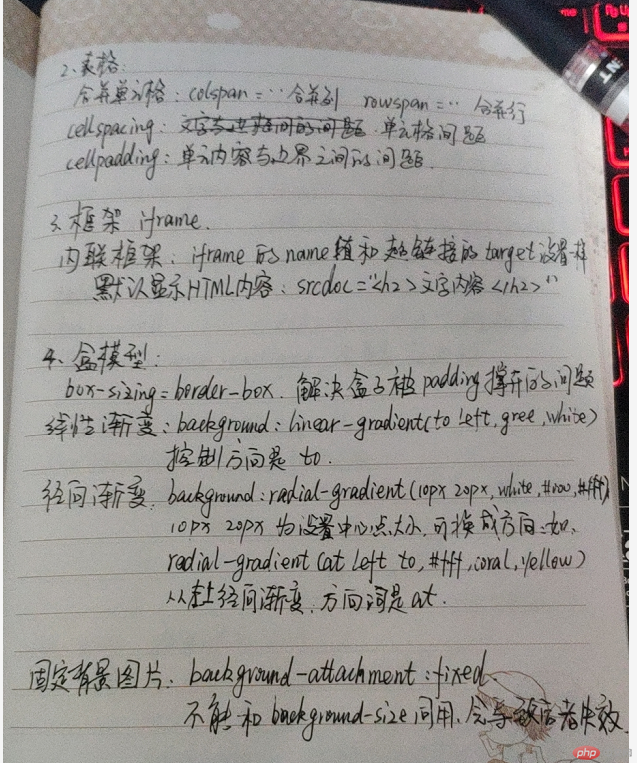 2、表格:
合并单元格: colspan = ‥ 合并列 rowspan = ‥ 合并行
cellspacing: 文字与边框间的间题. 单元格间题
cellpadding: 单元内容与边界之间的间题.
3.框架 iframe.
内联框架: iframe的name值和超链接的target设置一样
默认显示HTML内容: srcdoc="<h2>文字内容</h2>"
4、盒模型:
box-sizing = border-box. 解决盒子被padding撑开的问题
线性渐变: background: linear-gradient(to left, gree, white)
控制方向是 to.
径向渐变. background: radial-gradient(10px 20px, white, #fff)
10px 20px 为设置中心点大小, 可换成方向:如,
radial-gradient(at left to, #fff, coral, yellow)
从左上径向渐变, 方向词是at.
固定背景图片: background-attachment: fixed.
不能和background-size同用, 会导致后者失效.
php